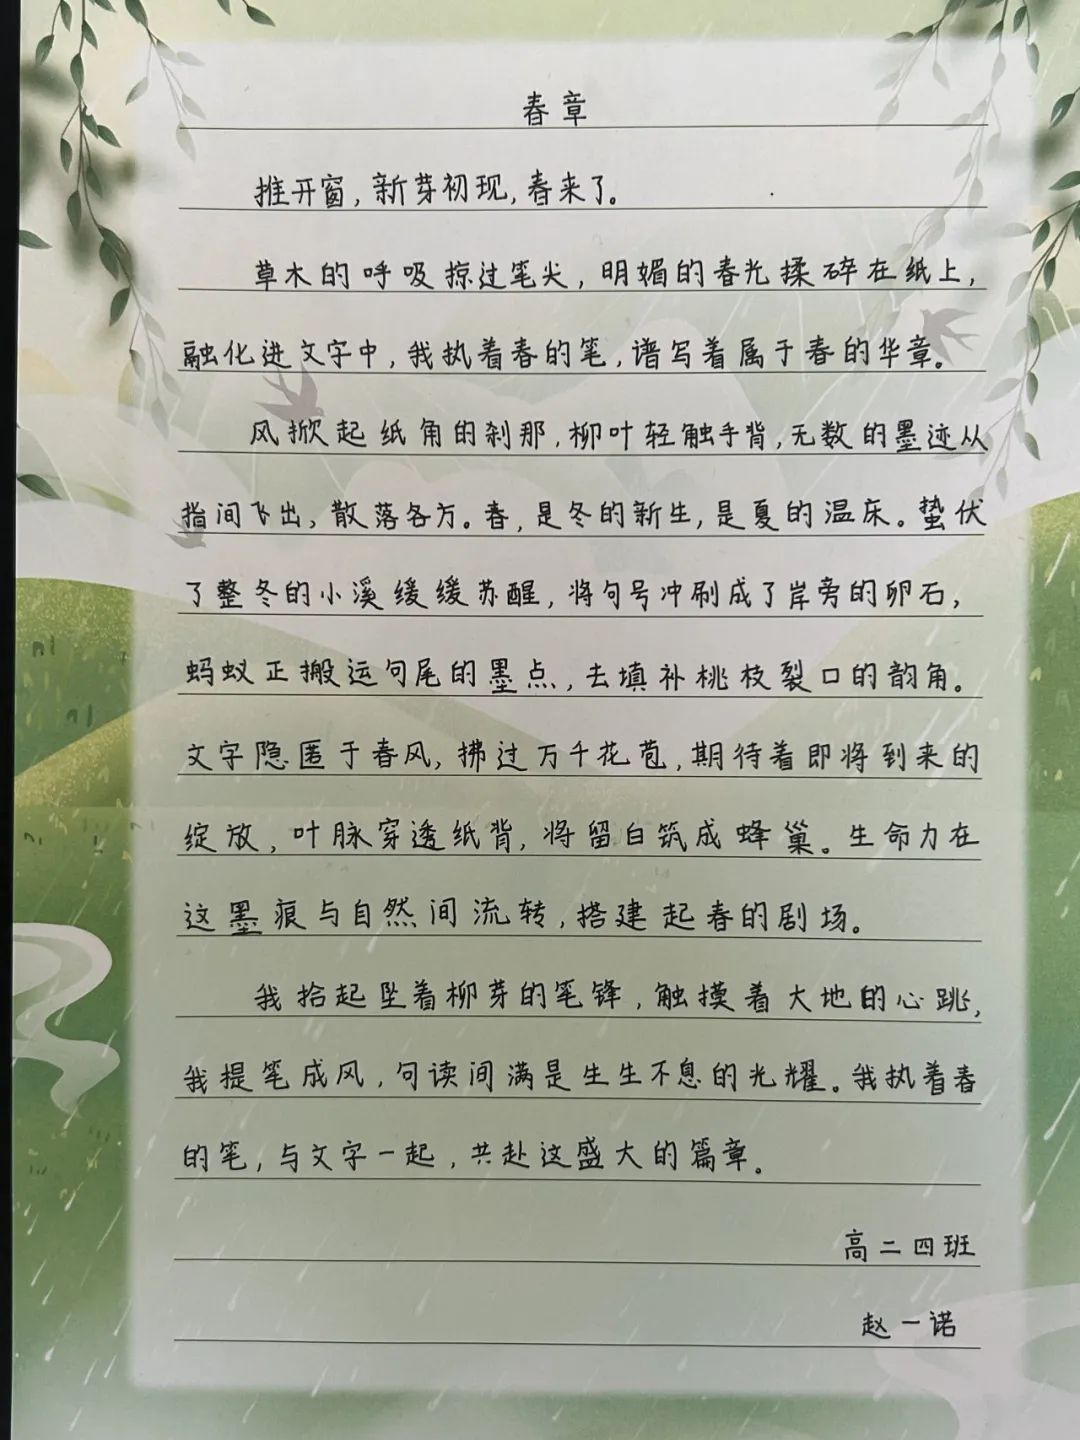 春章
推开窗,新芽初现,春来了。
草木的呼吸掠过笔尖,明媚的春光揉碎在纸上,
融化进文字中,我执着春的笔,谱写着属于春的华章。
风掀起纸角的刹那,柳叶轻触手背,无数的墨迹从
指间飞出,散落各方。春,是冬的新生,是夏的温床。蛰伏
了整冬的小溪缓缓苏醒,将句号冲刷成了岸旁的卵石,
蚂蚁正搬运句尾的墨点,去填补桃枝裂口的韵角。
文字隐匿于春风,拂过万千花苞,期待着即将到来的
绽放,叶脉穿透纸背,将留白筑成蜂巢。生命力在
这墨痕与自然间流转,搭建起春的剧场。
我拾起坠着柳芽的笔锋,触摸着大地的心跳,
我提笔成风,句读间满是生生不息的光耀。我执着春
的笔,与文字一起,共赴这盛大的篇章。
高二四班
赵一诺